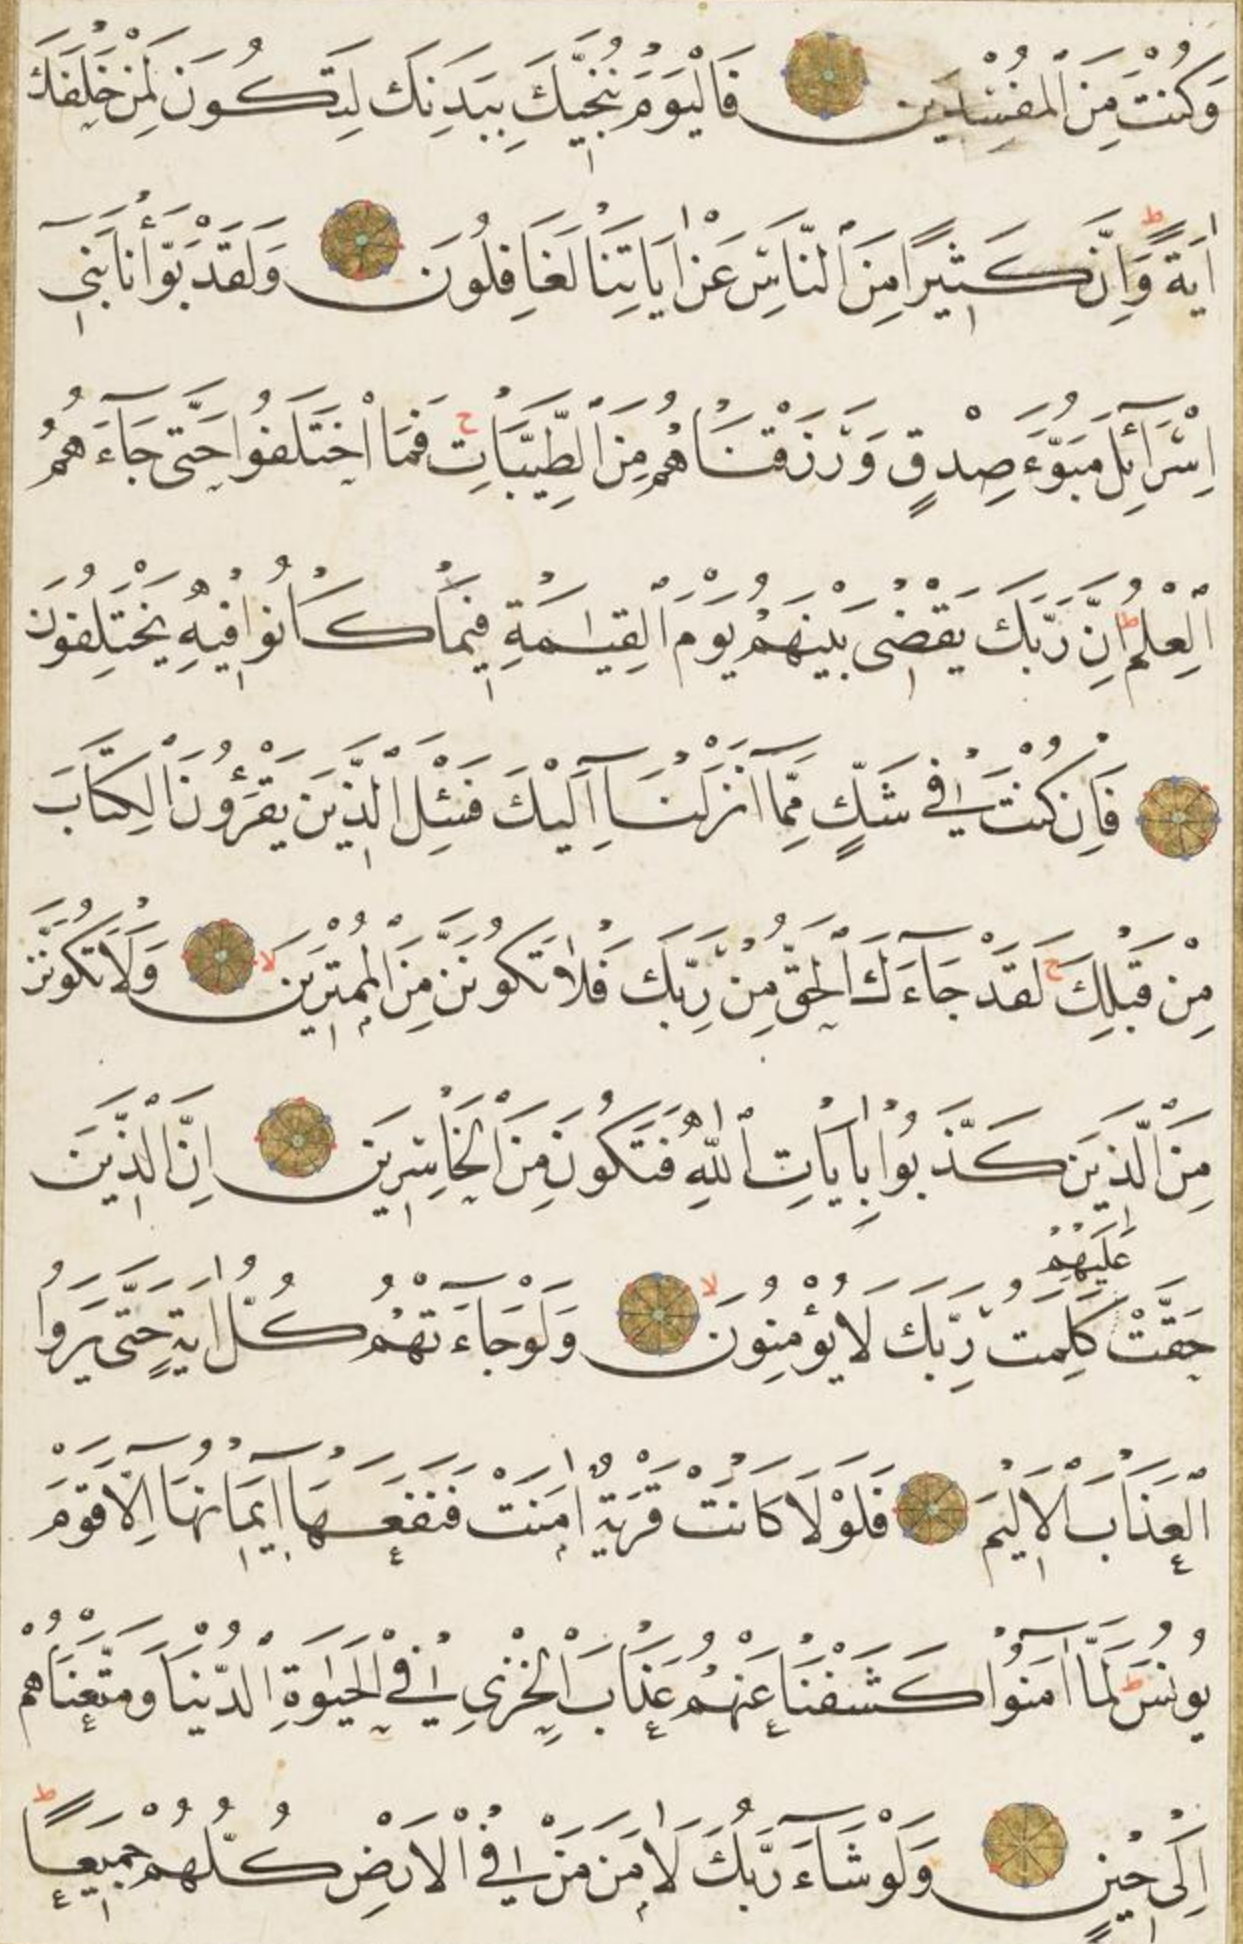 وَكُنْتَ مِنَ الْمُفْسِدِينَ فَالْيَوْمَ نُنَجِّيكَ بِبَدَنِكَ لِتَكُونَ لِمَنْ خَلْفَكَ
اٰيَةً ط وَاِنَّ كَثِيرًا مِنَ النَّاسِ عَنْ اٰيَاتِنَا لَغَافِلُونَ وَلَقَدْ بَوَّأْنَا بَنِي
اِسْرَآئِلَ مُبَوَّءَ صِدْقٍ وَرَزَقْنَاهُمْ مِنَ الطَّيِّبَاتِ ح فَمَا اخْتَلَفُوا حَتَّى جَآءَهُمُ
الْعِلْمُ ط اِنَّ رَبَّكَ يَقْضِى بَيْنَهُمْ يَوْمَ الْقِيٰمَةِ فِيمَا كَانُوا فِيهِ يَخْتَلِفُونَ
فَاِنْ كُنْتَ فِي شَكٍّ مِمَّا اَنْزَلْنَآ اِلَيْكَ فَسْئَلِ الَّذِينَ يَقْرَؤُنَ الْكِتَابَ
مِنْ قَبْلِكَ ح لَقَدْ جَآءَكَ الْحَقُّ مِنْ رَبِّكَ فَلَا تَكُونَنَّ مِنَ الْمُمْتَرِينَ لا وَلَا تَكُونَنَّ
مِنَ الَّذِينَ كَذَّبُوا بِاٰيَاتِ اللّٰهِ فَتَكُونَ مِنَ الْخَاسِرِينَ اِنَّ الَّذِينَ
عَلَيْهِمْ
حَقَّتْ كَلِمَتُ رَبِّكَ لَا يُؤْمِنُونَ لا وَلَوْ جَآءَتْهُمْ كُلُّ اٰيَةٍ حَتَّى يَرَوُا
الْعَذَابَ الْاَلِيمَ فَلَوْلَا كَانَتْ قَرْيَةٌ اٰمَنَتْ فَنَفَعَهَآ اِيمَانُهَآ اِلَّا قَوْمَ
يُونُسَ ط لَمَّآ اٰمَنُوا كَشَفْنَا عَنْهُمْ عَذَابَ الْخِزْيِ فِي الْحَيٰوةِ الدُّنْيَا وَمَتَّعْنَاهُمْ
اِلَى حِينٍ وَلَوْ شَآءَ رَبُّكَ لَاٰمَنَ مَنْ فِي الْاَرْضِ كُلُّهُمْ جَمِيعًا ط